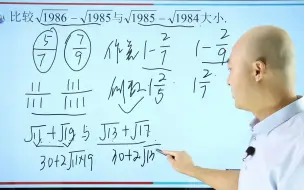 比较√1986 - √1985与√1985 - √1984大小.
5/7 7/9 作差 1-2/7 1-2/9
111/111 1111/1111 倒数 1 2/5 1 2/7
√11 + √19 与 √13 + √17
30+2√11×19 30+2√13